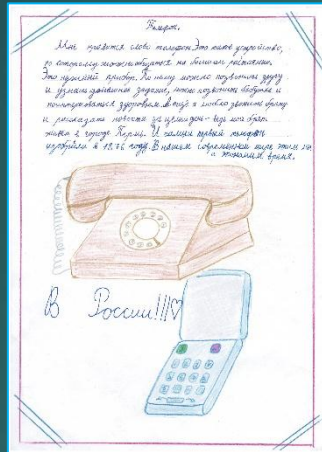 Телефон.
Мне нравится слово телефон. Это такое устройство,
по которому можно общаться на большом расстоянии.
Это нужный прибор. По нему можно позвонить другу
и узнать домашнее задание, можно позвонить бабушке и
поинтересоваться здоровьем. А ещё я люблю звонить брату
и рассказать новости за целый день - ведь мой брат
живёт в городе Пермь. И самый первый телефон
изобрели в 1876 году. В нашем современном мире этим
и экономят время.
В России!!!